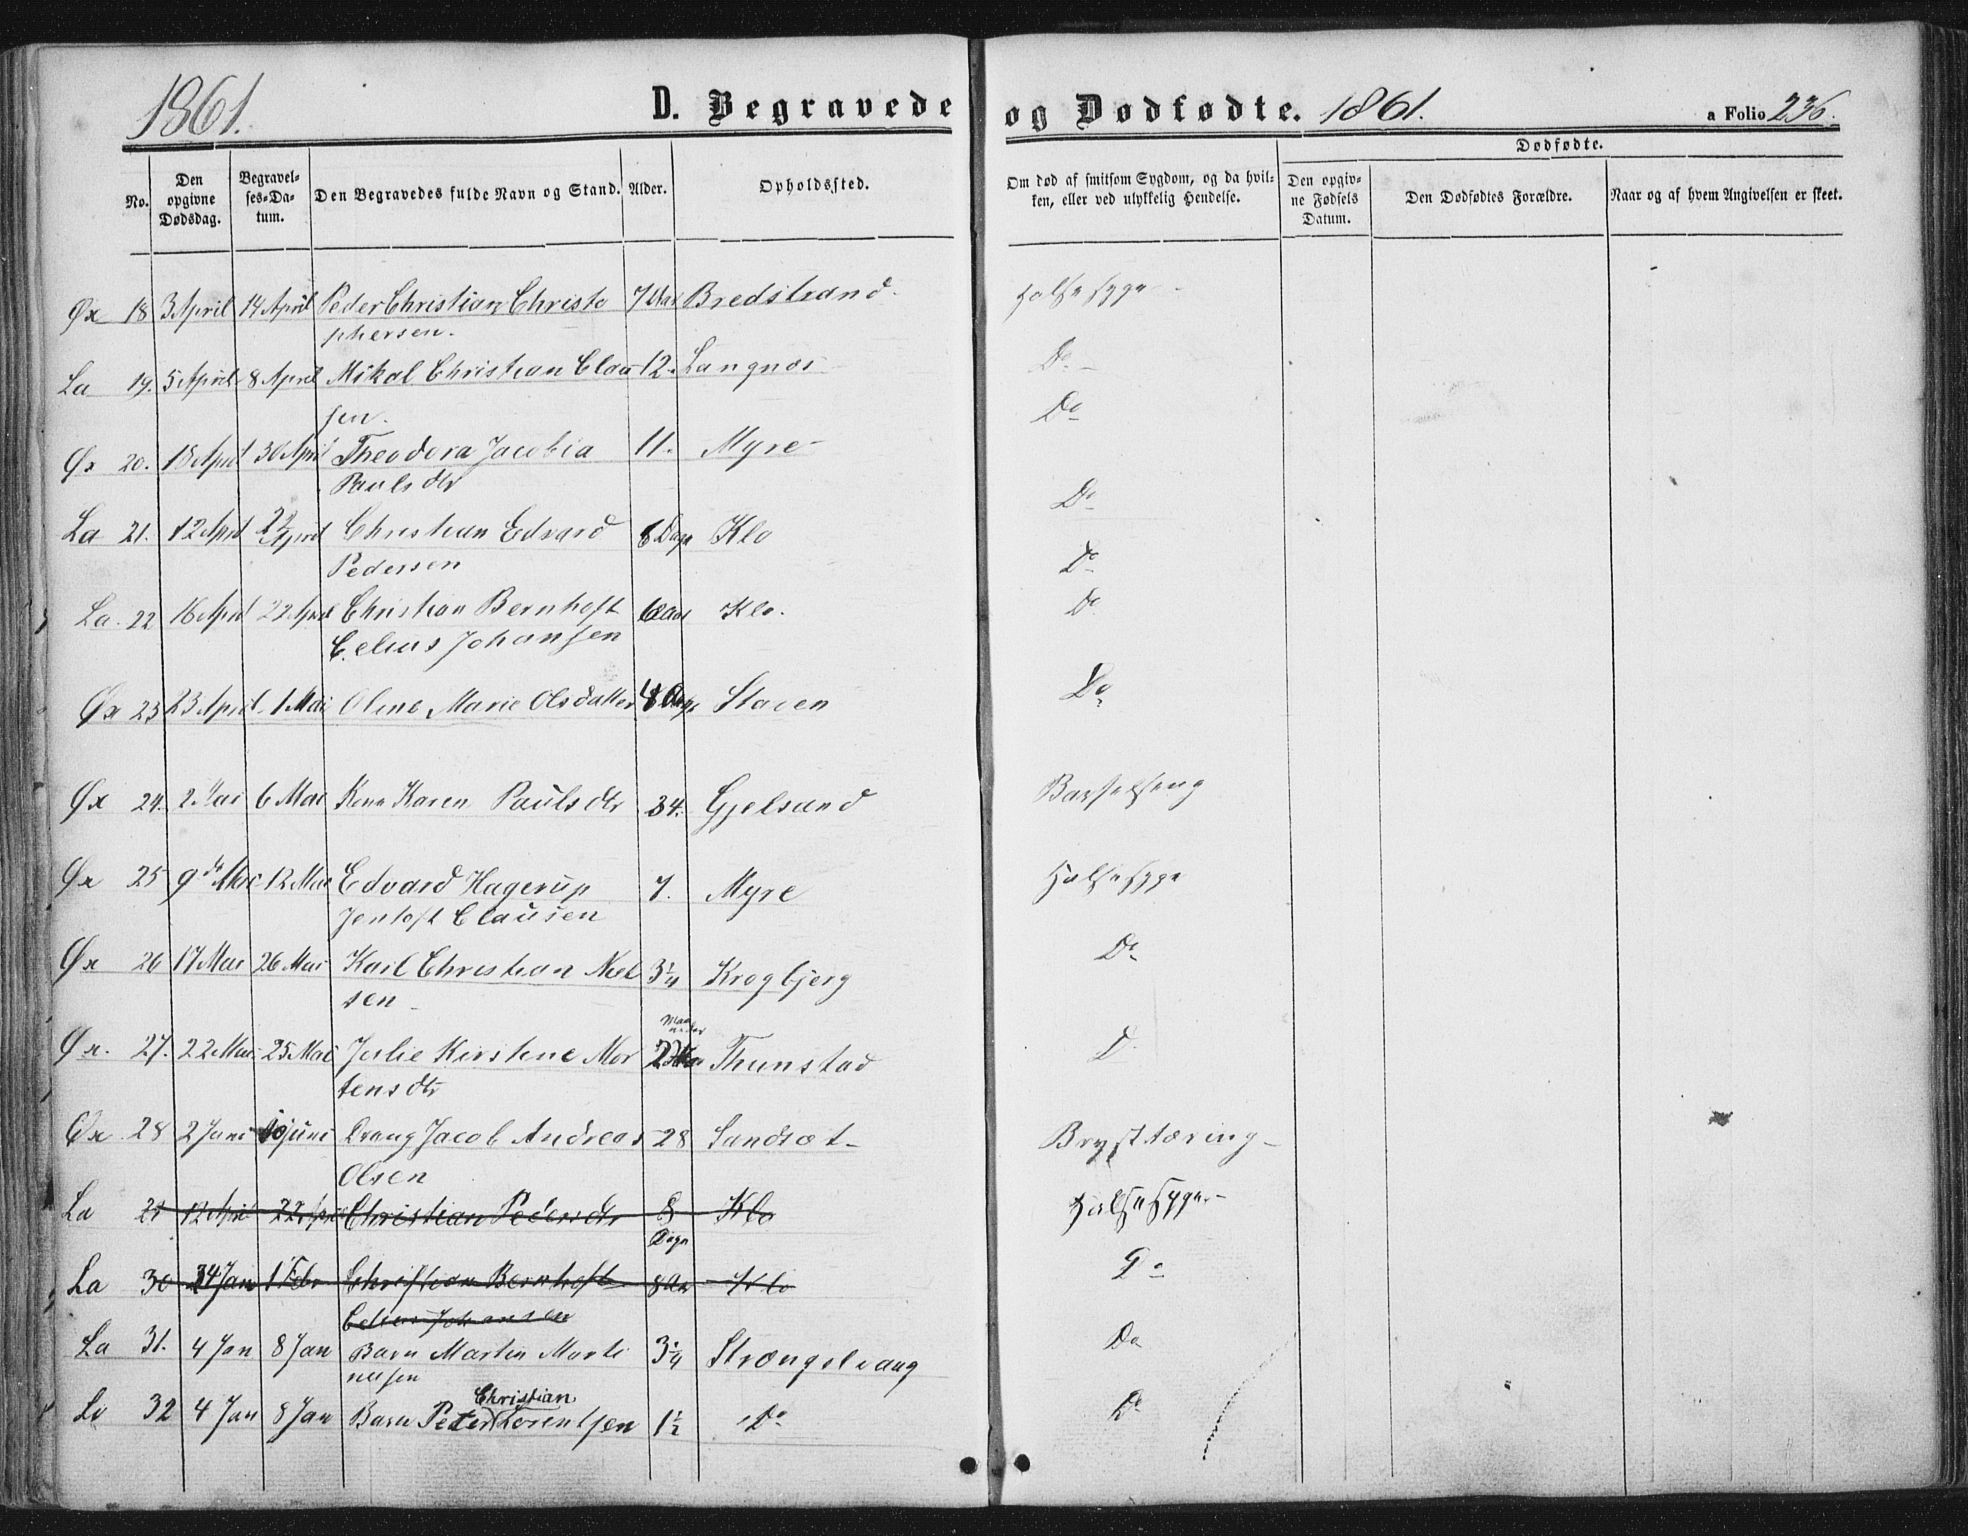 1861. D. Begravede og Dødfødte. 1861. a Folio 236.
Dødfødte.
No. Den opgivne Dødsdag. Begravel-ses-Da-tum. Den Begravedes fulde Navn og Stand. Alder. Opholdssted. Om død af smitsom Sygdom, og da hvil-ken, eller ved ulykkelig Hendelse. Den opgiv-ne Fødsels Datum. Den Dødfødtes Forældre. Naar og af hvem Angivelsen er skeet.
Øx 18 3 April 14 April Peder Christian Christo 7 Aar Bredstrand Halsesyge
phersen.
La 19. 5 April 8 April Mikal Christian Clau 12. Langnæs Do
sen.
Øx 20. 18 April 30 April Theodora Jacobia 11. Myre Do
Paulsdtr
La 21. 12 April 22 April Christian Edvard 8 Dage Klo Do
Pedersen
Do
La. 22 16 April 22 April Christian Bernhoft Aar Klo. Do
Celius Johansen
Øx 23 23 April 1 Mai Oline Marie Olsdatter Staven Do
Øx 24. 2 Mai 6 Mai Kone Karen Paulsdtr 34. Gjelsund Barselseng
Øx 25 9de Mai 12 Mai Edvard Hagerup 7. Myre Halsesyge
Jentoft Clausen
Øx 26 17 Mai 26 Mai Karl Christian Niel 3 1/4 Krogbjerg Do
sen
Maaneder
Øx. 27. 22 Mai 25 Mai Julie Kirstine Mor 2 Thunstad D
tensdtr
Øx 28 2 Juni 10 Juni Dreng Jacob Andreas 28 Sandset Brysttæring
Olsen
La 12 April 22 April Christian Pedersdtr 8 Klo Halsesyge
Dage
La 30 24 Jan 1 Febr Christian Bernhoft 8 Aar Klo Do
Celius Johansen
La 31. 4 Jan 8 Jan Barn Martin Marti 3 1/4 Strængelvaag Do
nussen
Christian
La 32 4 Jan 8 Jan Barn Peter Lorentsen 1 1/2 Do Do